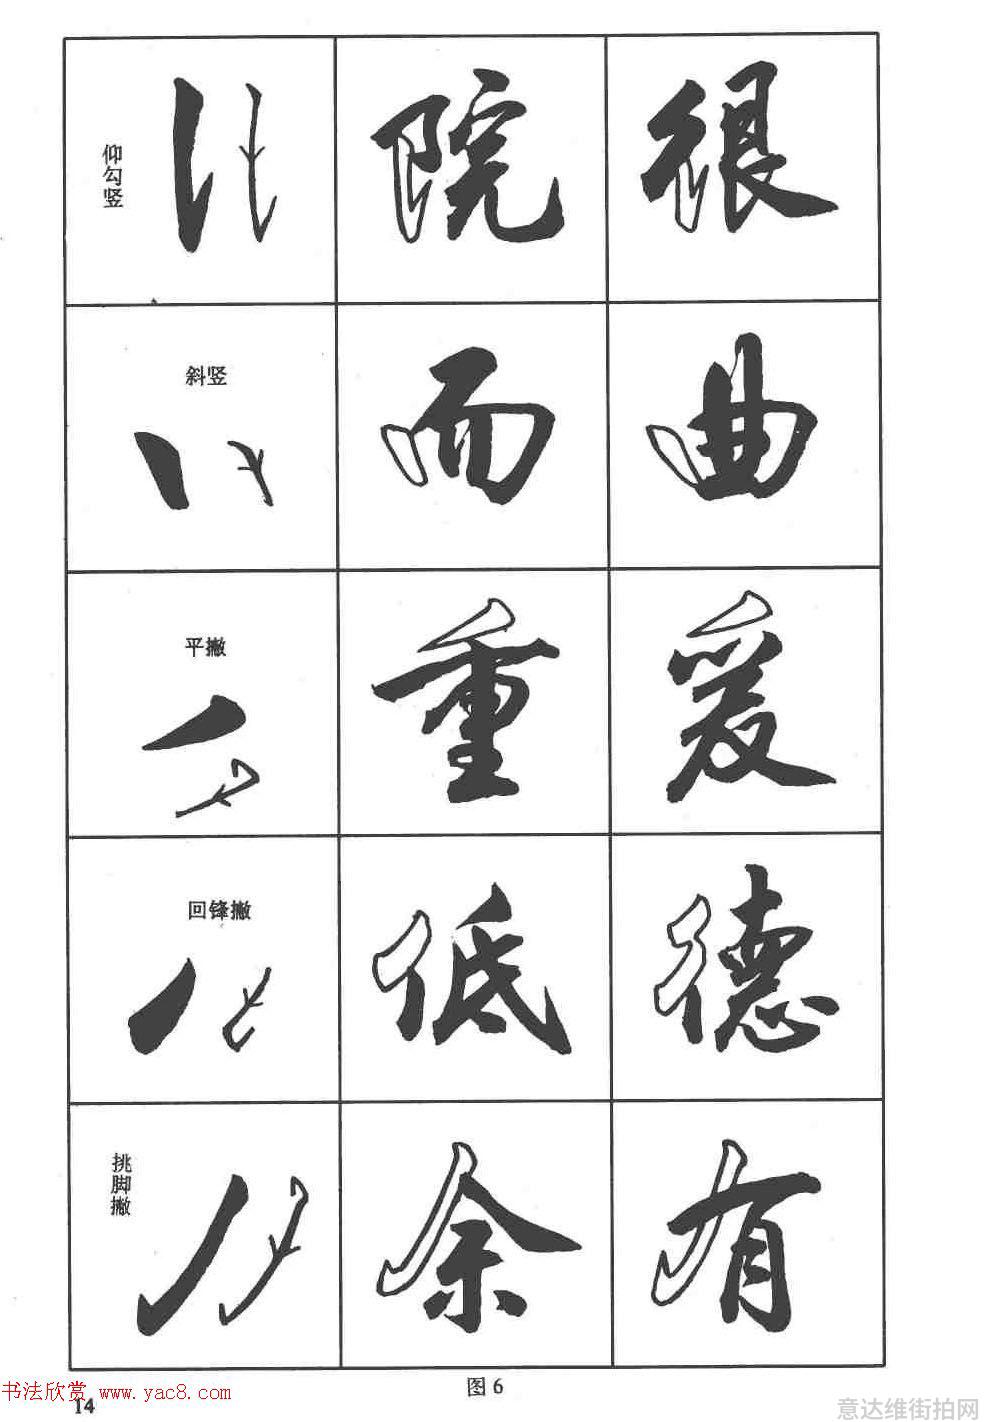 仰勾竖
院
很
斜竖
而
曲
平撇
重
爰
回锋撇
低
德
挑脚撇
余
有
图6
书法欣赏 www.yac8.com
14
意达维街拍网